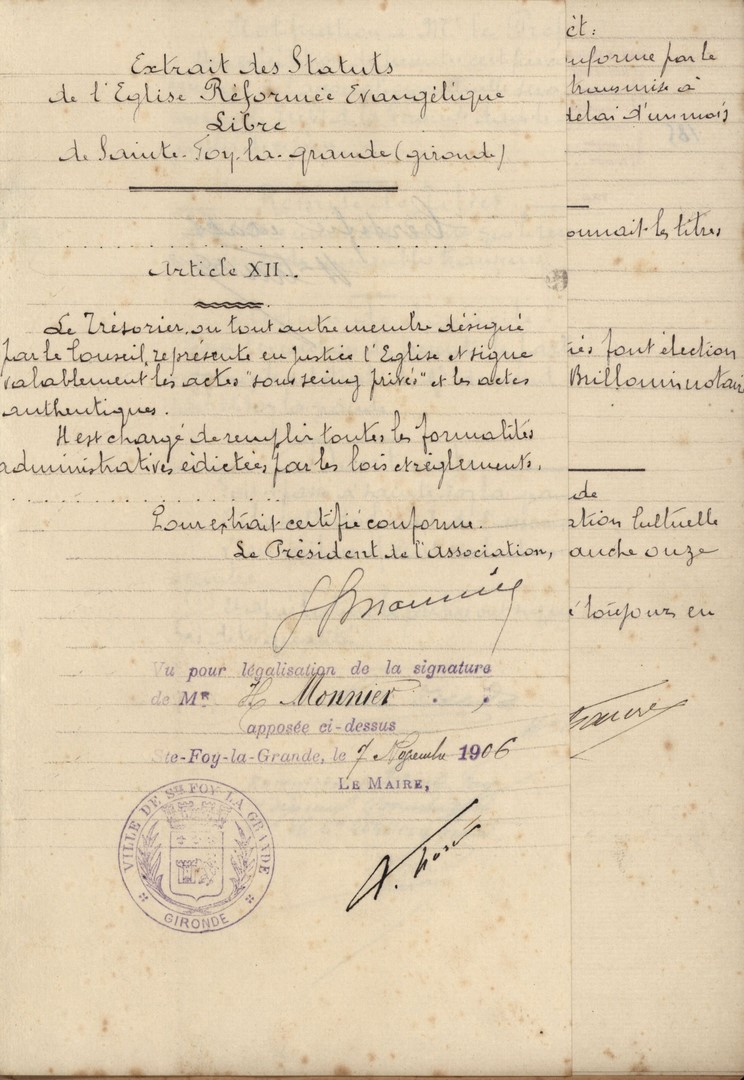 Extrait des Statuts
de l'Eglise Réformée Evangélique
Libre
de Sainte-Foy-la-grande (gironde)
Article XII.
Le Trésorier, ou tout autre membre désigné
par le Conseil, représente en justice l'Eglise et signe
valablement les actes "sous seing privés" et les actes
authentiques.
Il est chargé de remplir toutes les formalités
administratives édictées par les lois et règlements.
Pour extrait certifié conforme.
Le Président de l'association,
Vu pour légalisation de la signature
de Mr H Monnier
apposée ci-dessus
Ste-Foy-la-Grande, le 7 Novembre 1906
LE MAIRE,
VILLE DE Ste FOY LA GRANDE
GIRONDE
êt:
onforme par le
transmise à
délai d'un mois
onnait les titres
font élection
Brillouin notair
de
ation Cultuelle
anche onze
é toujours en